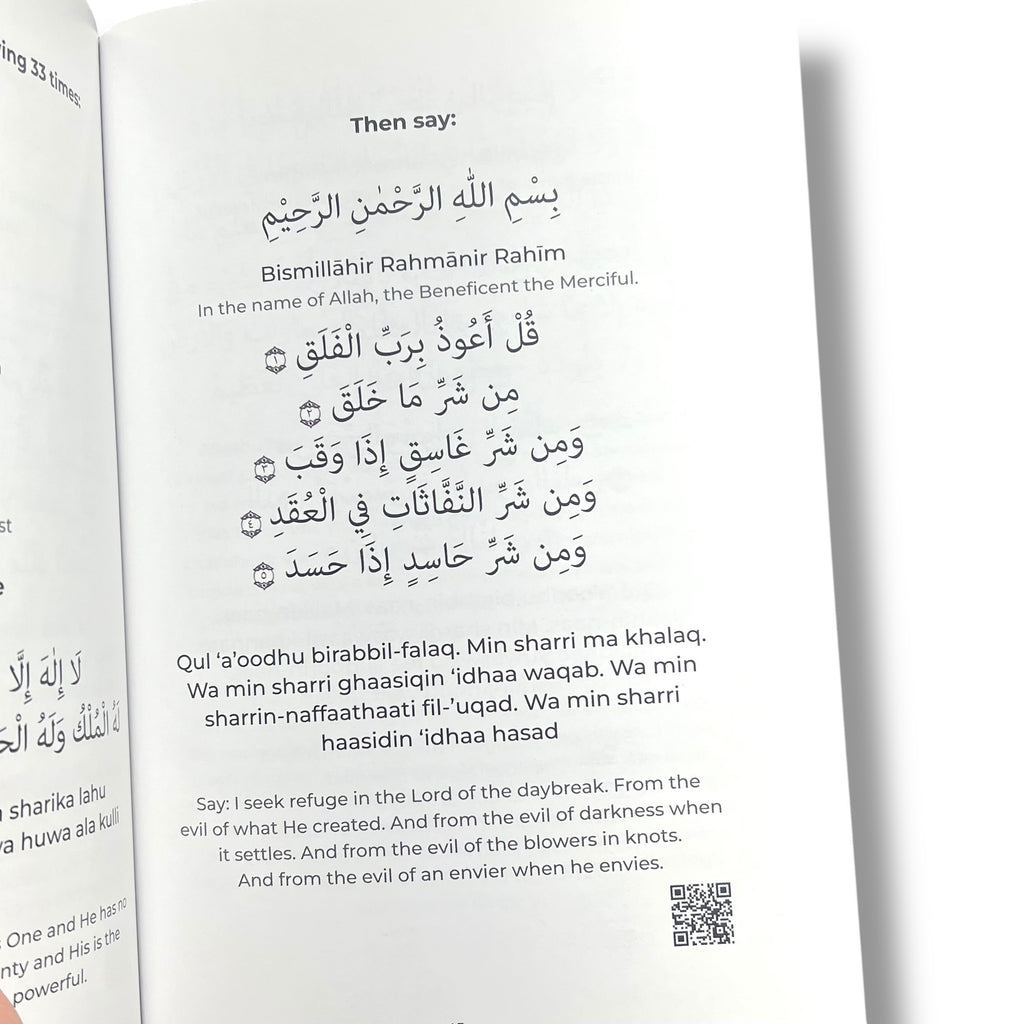 ing 33 times:
st
لَا إِلٰهَ إِلَّا
لَهُ الْمُلْكُ وَلَهُ
sharika lahu
huwa ala kulli
One and He has no
and His is the
powerful.
Then say:
بِسْمِ اللّٰهِ الرَّحْمٰنِ الرَّحِيْمِ
Bismillāhir Rahmānir Rahīm
In the name of Allah, the Beneficent the Merciful.
قُلْ أَعُوذُ بِرَبِّ الْفَلَقِ ١
مِن شَرِّ مَا خَلَقَ ٢
وَمِن شَرِّ غَاسِقٍ إِذَا وَقَبَ ٣
وَمِن شَرِّ النَّفَّاثَاتِ فِي الْعُقَدِ ٤
وَمِن شَرِّ حَاسِدٍ إِذَا حَسَدَ ٥
Qul ‘a’oodhu birabbil-falaq. Min sharri ma khalaq.
Wa min sharri ghaasiqin ‘idhaa waqab. Wa min
sharrin-naffaathaati fil-’uqad. Wa min sharri
haasidin ‘idhaa hasad
Say: I seek refuge in the Lord of the daybreak. From the
evil of what He created. And from the evil of darkness when
it settles. And from the evil of the blowers in knots.
And from the evil of an envier when he envies.